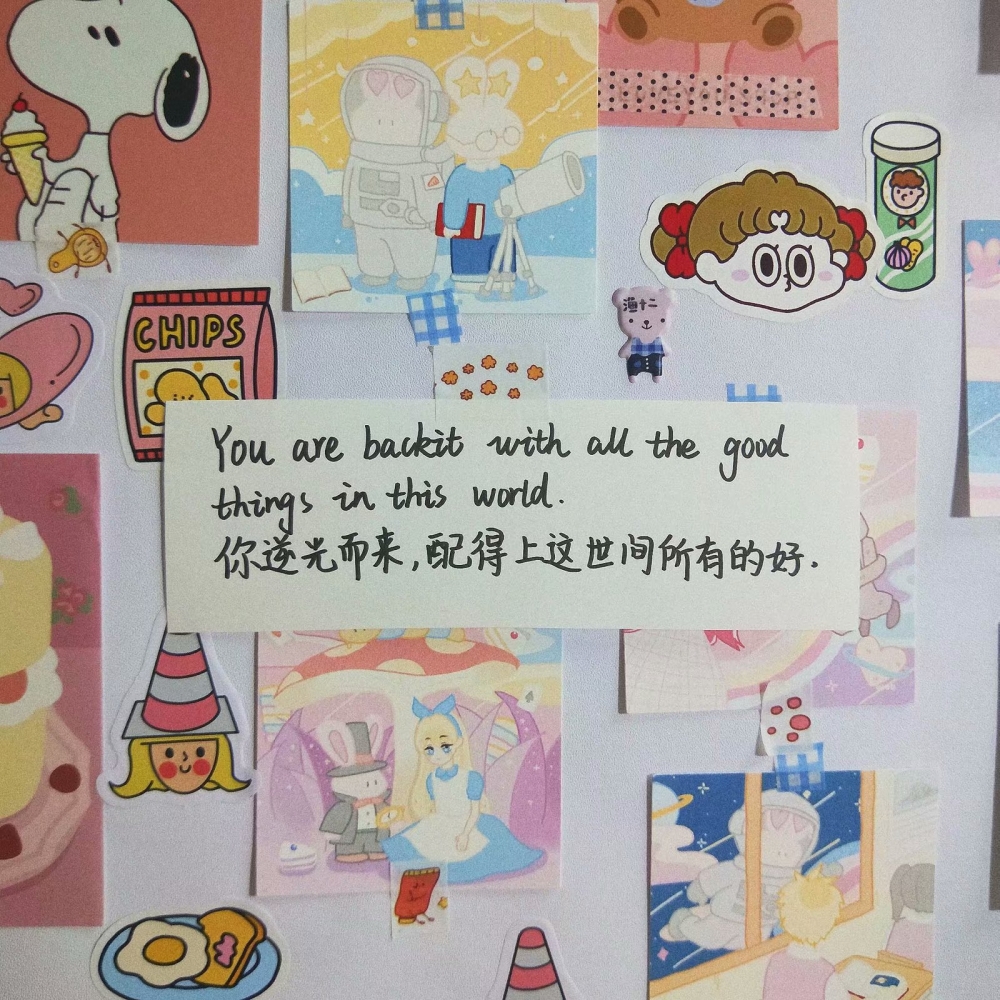 CHIPS
渔十二
You are backit with all the good
things in this world.
你逆光而来,配得上这世间所有的好.